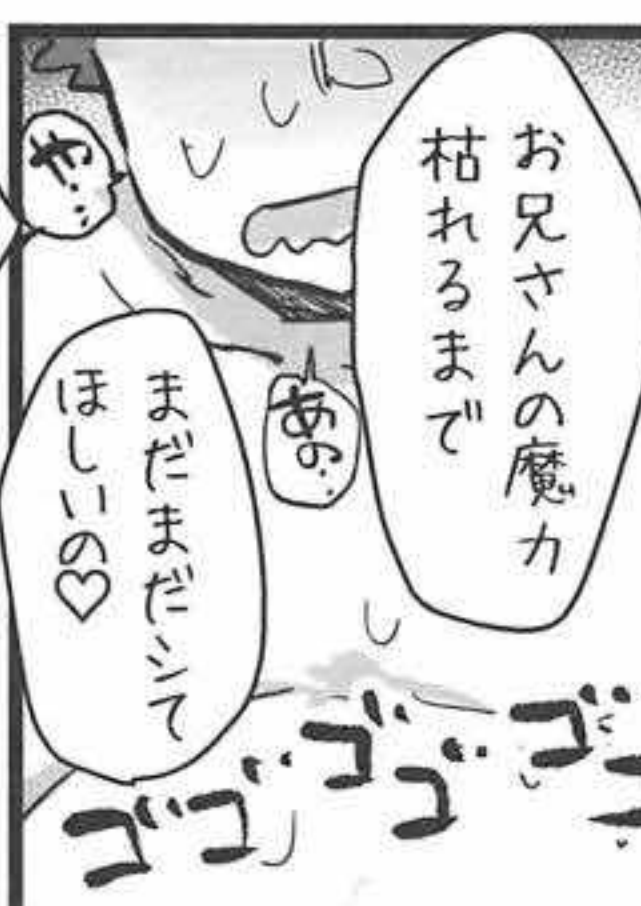 お兄さんの魔力
枯れるまで
あの…
や…
まだまだシて
ほしいの♡
ゴゴゴゴゴ